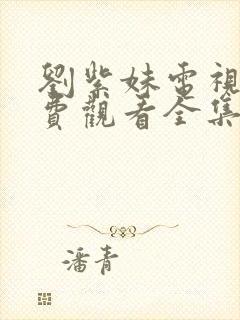 劉紫妹電視
費觀看全集
潘青